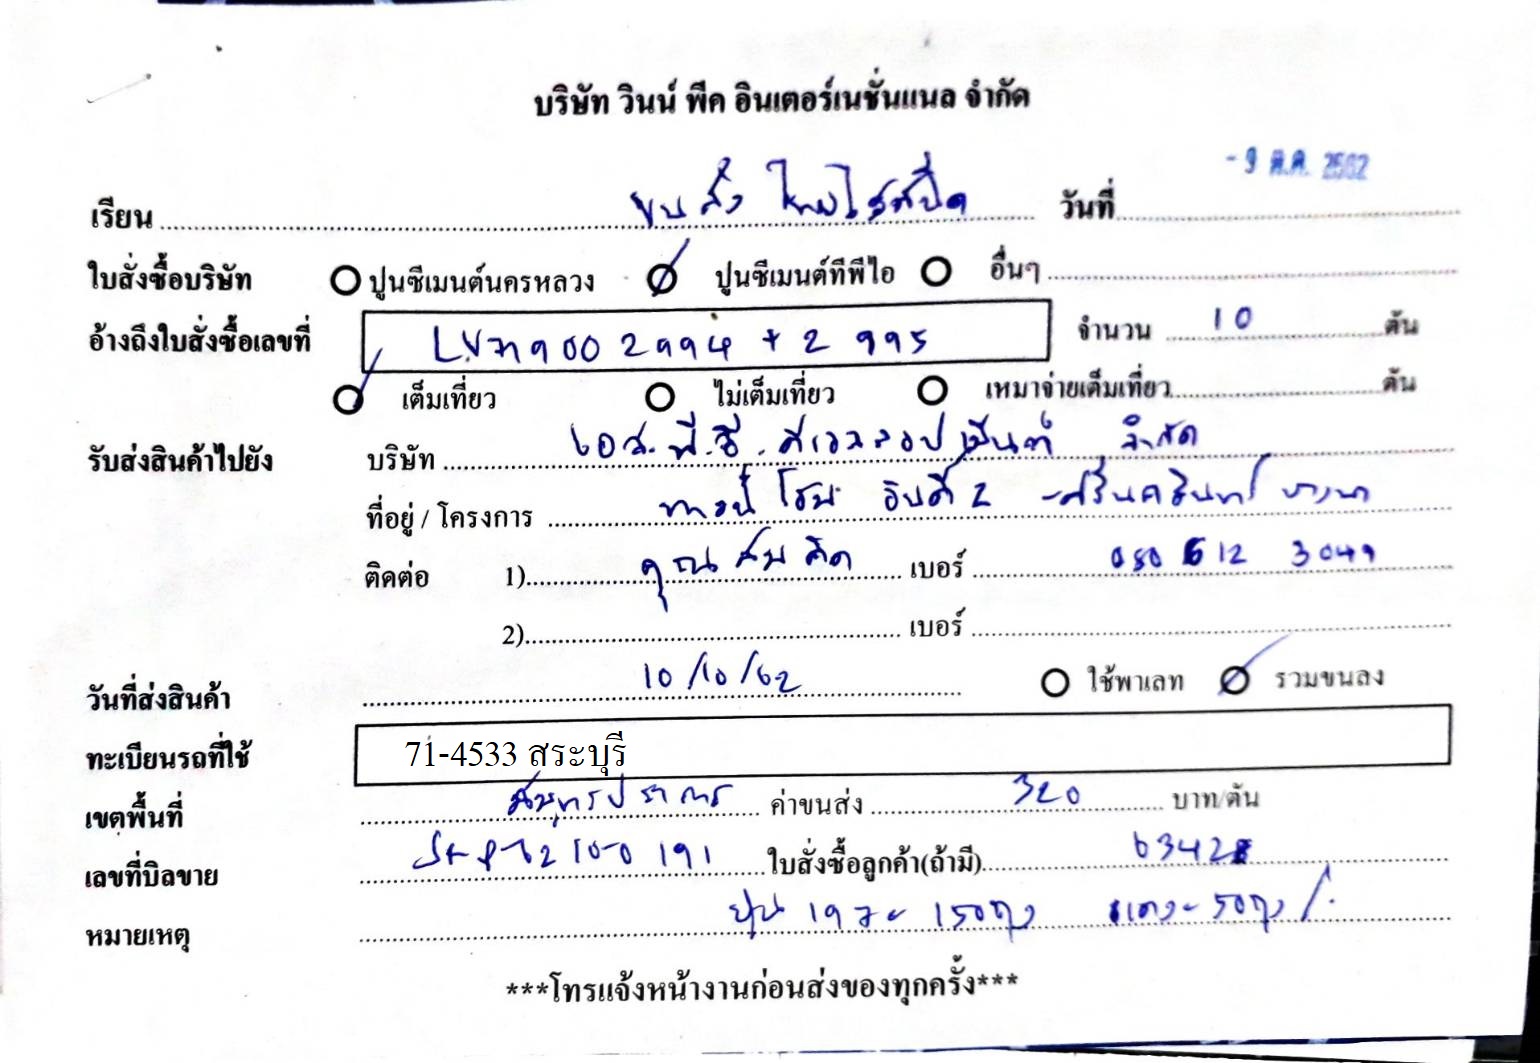 บริษัท วินน์ พีค อินเตอร์เนชั่นแนล จำกัด
- 9 ต.ค. 2562
เรียน ขนส่ง วันที่
ใบสั่งซื้อบริษัท ปูนซีเมนต์นครหลวง ปูนซีเมนต์ทีพีไอ อื่นๆ
อ้างถึงใบสั่งซื้อเลขที่ จำนวน 10 ตัน
เต็มเที่ยว ไม่เต็มเที่ยว เหมาจ่ายเต็มเที่ยว ตัน
รับส่งสินค้าไปยัง บริษัท เอส.พี.ซี. ดีเวลลอปเม้นท์ จำกัด
ที่อยู่ / โครงการ ทาวน์ โฮม อินดี้ 2 -ศรีนครินทร์ บางนา
ติดต่อ 1) คุณสมคิด เบอร์ 080 612 3049
2) เบอร์
วันที่ส่งสินค้า 10/10/62 ใช้พาเลท รวมขนลง
ทะเบียนรถที่ใช้ 71-4533 สระบุรี
เขตพื้นที่ สมุทรปราการ ค่าขนส่ง 320 บาท/ตัน
เลขที่บิลขาย ใบสั่งซื้อลูกค้า(ถ้ามี) 63428
หมายเหตุ ปูน 150ถุง แดง = 50ถุง
***โทรแจ้งหน้างานก่อนส่งของทุกครั้ง***